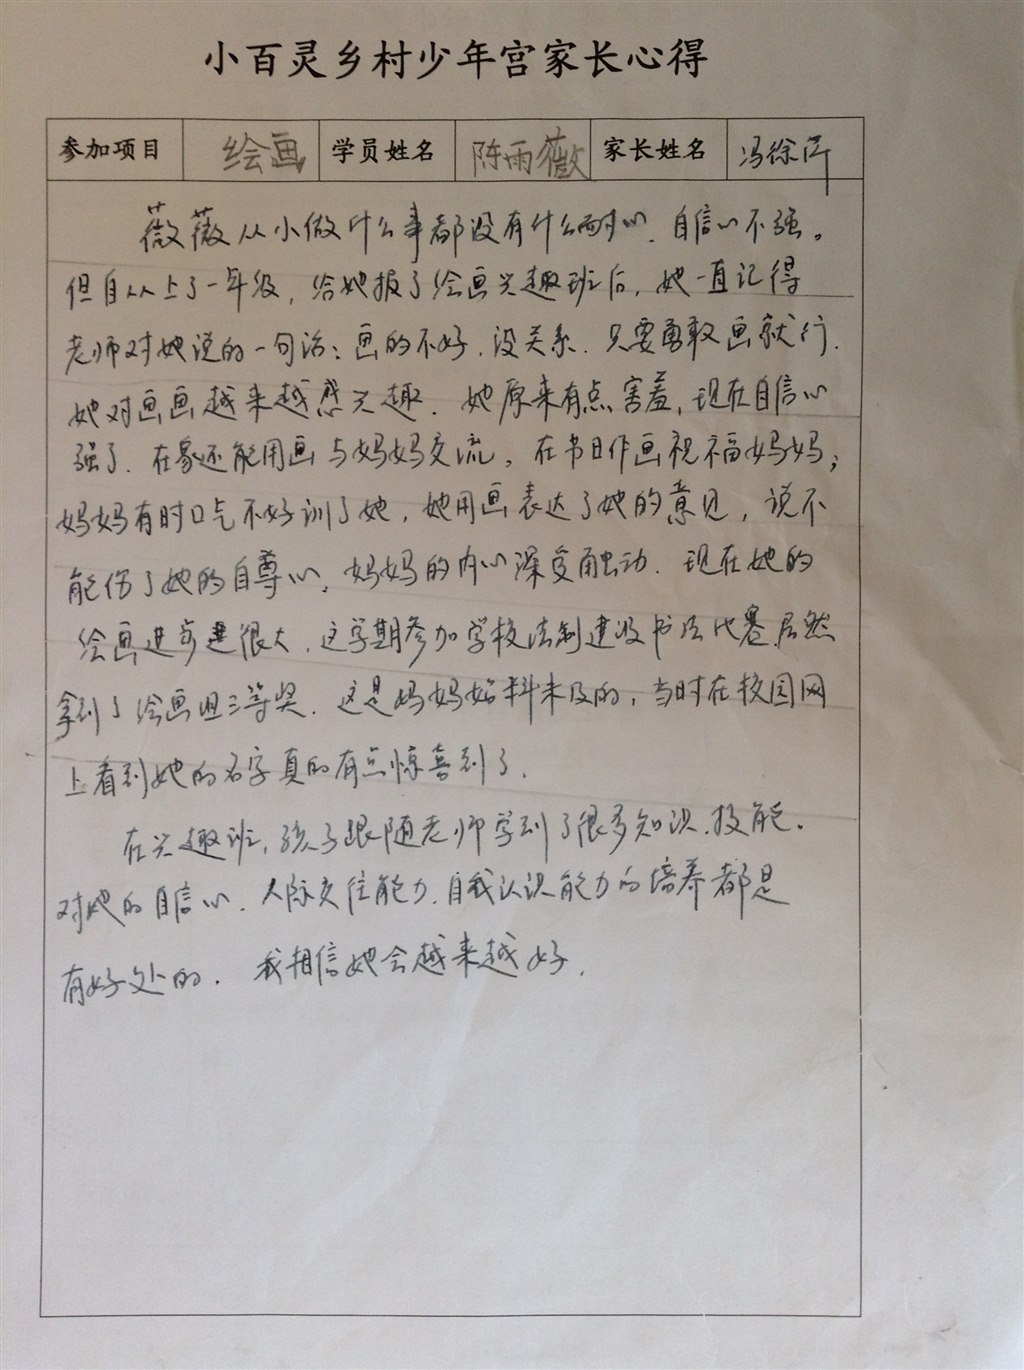 小百灵乡村少年宫家长心得
参加项目 绘画 学员姓名 陈雨薇 家长姓名 冯徐
薇薇从小做什么事都没有什么耐心、自信心不强。
但自从上了一年级，给她报了绘画兴趣班后，她一直记得
老师对她说的一句话：画的不好、没关系、只要勇敢画就行.
她对画画越来越感兴趣. 她原来有点害羞，现在自信心
强了. 在家还能用画与妈妈交流，在节日作画祝福妈妈；
妈妈有时口气不好训了她，她用画表达了她的意见，说不
能伤了她的自尊心，妈妈的内心深受触动. 现在她的
绘画进步很大，这学期参加学校法制建设书法比赛居然
拿到了绘画组三等奖. 这是妈妈始料未及的，当时在校园网
上看到她的名字真的有点惊喜到了.
在兴趣班，孩子跟随老师学到了很多知识、技能.
对她的自信心、人际交往能力、自我认识能力的培养都是
有好处的. 我相信她会越来越好.